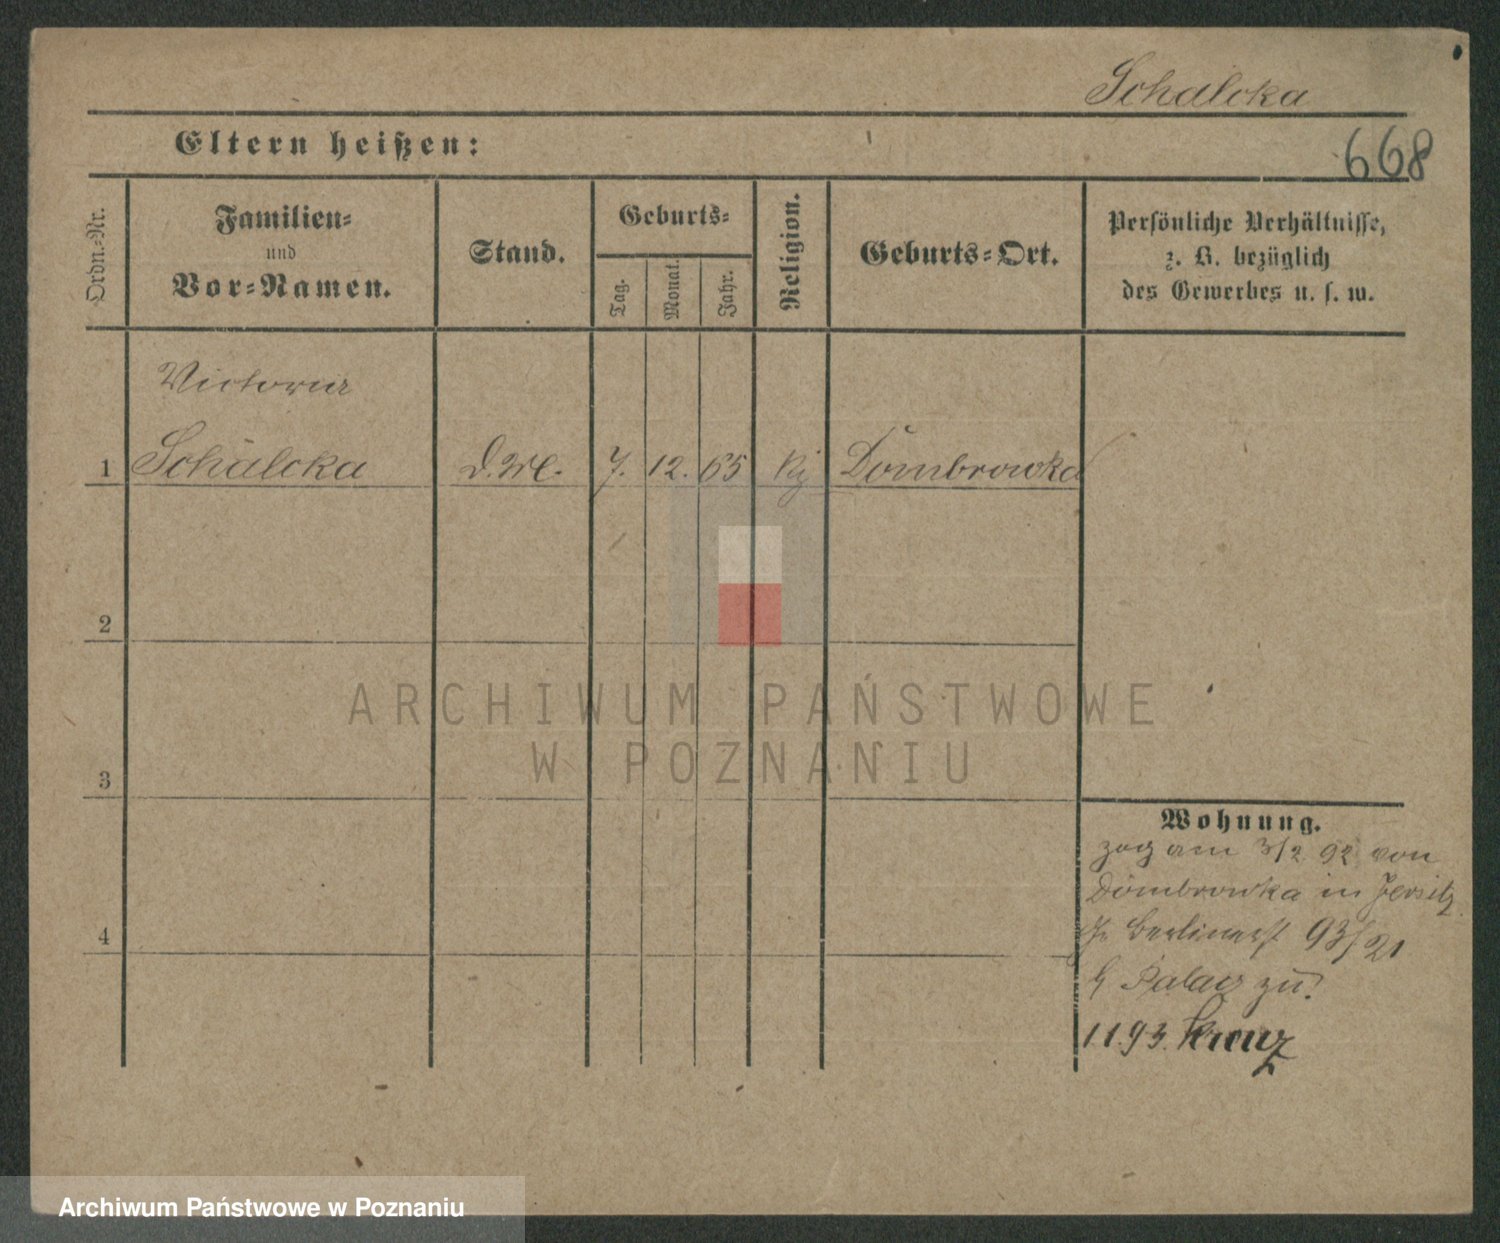 Schalcka
Eltern heißen:
668
Ordn.-Nr.
Familien-
und
Vor-Namen.
Stand.
Geburts-
Tag.
Monat.
Jahr.
Religion.
Geburts-Ort.
Persönliche Verhältnisse,
z. B. bezüglich
des Gewerbes u. s. w.
Victoria
1 Schalcka 7. 12. 65 Dombrowka
2
3
4
Wohnung.
zog am 3/2 92 von
Dombrowka in Jersitz
Berlinerst 93/21
Palacz zu.
1 1 93. Kreuz
ARCHIWUM PAŃSTWOWE
W POZNANIU
Archiwum Państwowe w Poznaniu